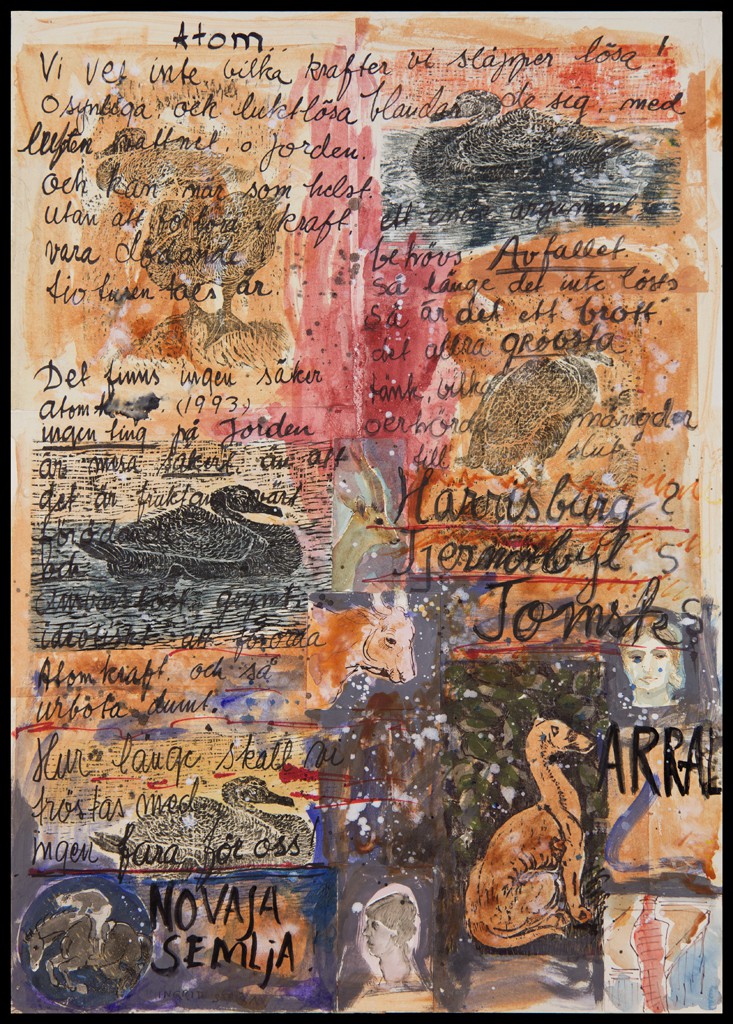 Atom
Vi vet inte vilka krafter vi släpper lösa!
Osynliga och luktlösa blandar de sig med
luften vattnet o Jorden.
och kan när som helst
utan att förlora i kraft
vara dödande i
tiotusentals år.
ett enda argument
behövs: Avfallet
så länge det inte lösts
så är det ett brott
det allra grövsta
tänk, vilka
oerhörda mängder
till slut
Det finns ingen säker
atom (1993)
ingenting på Jorden
är mera säkert än att
det är
och
ansvarslöst grymt
idiotiskt att förorda
Atomkraft och så
urbota dumt.
Harrisburg ?
Tjernobyl S
Tomsk S
ARRAL
Hur länge skall vi
tröstas med
ingen fara för oss!
NOVAJA
SEMLJA.
INGRID